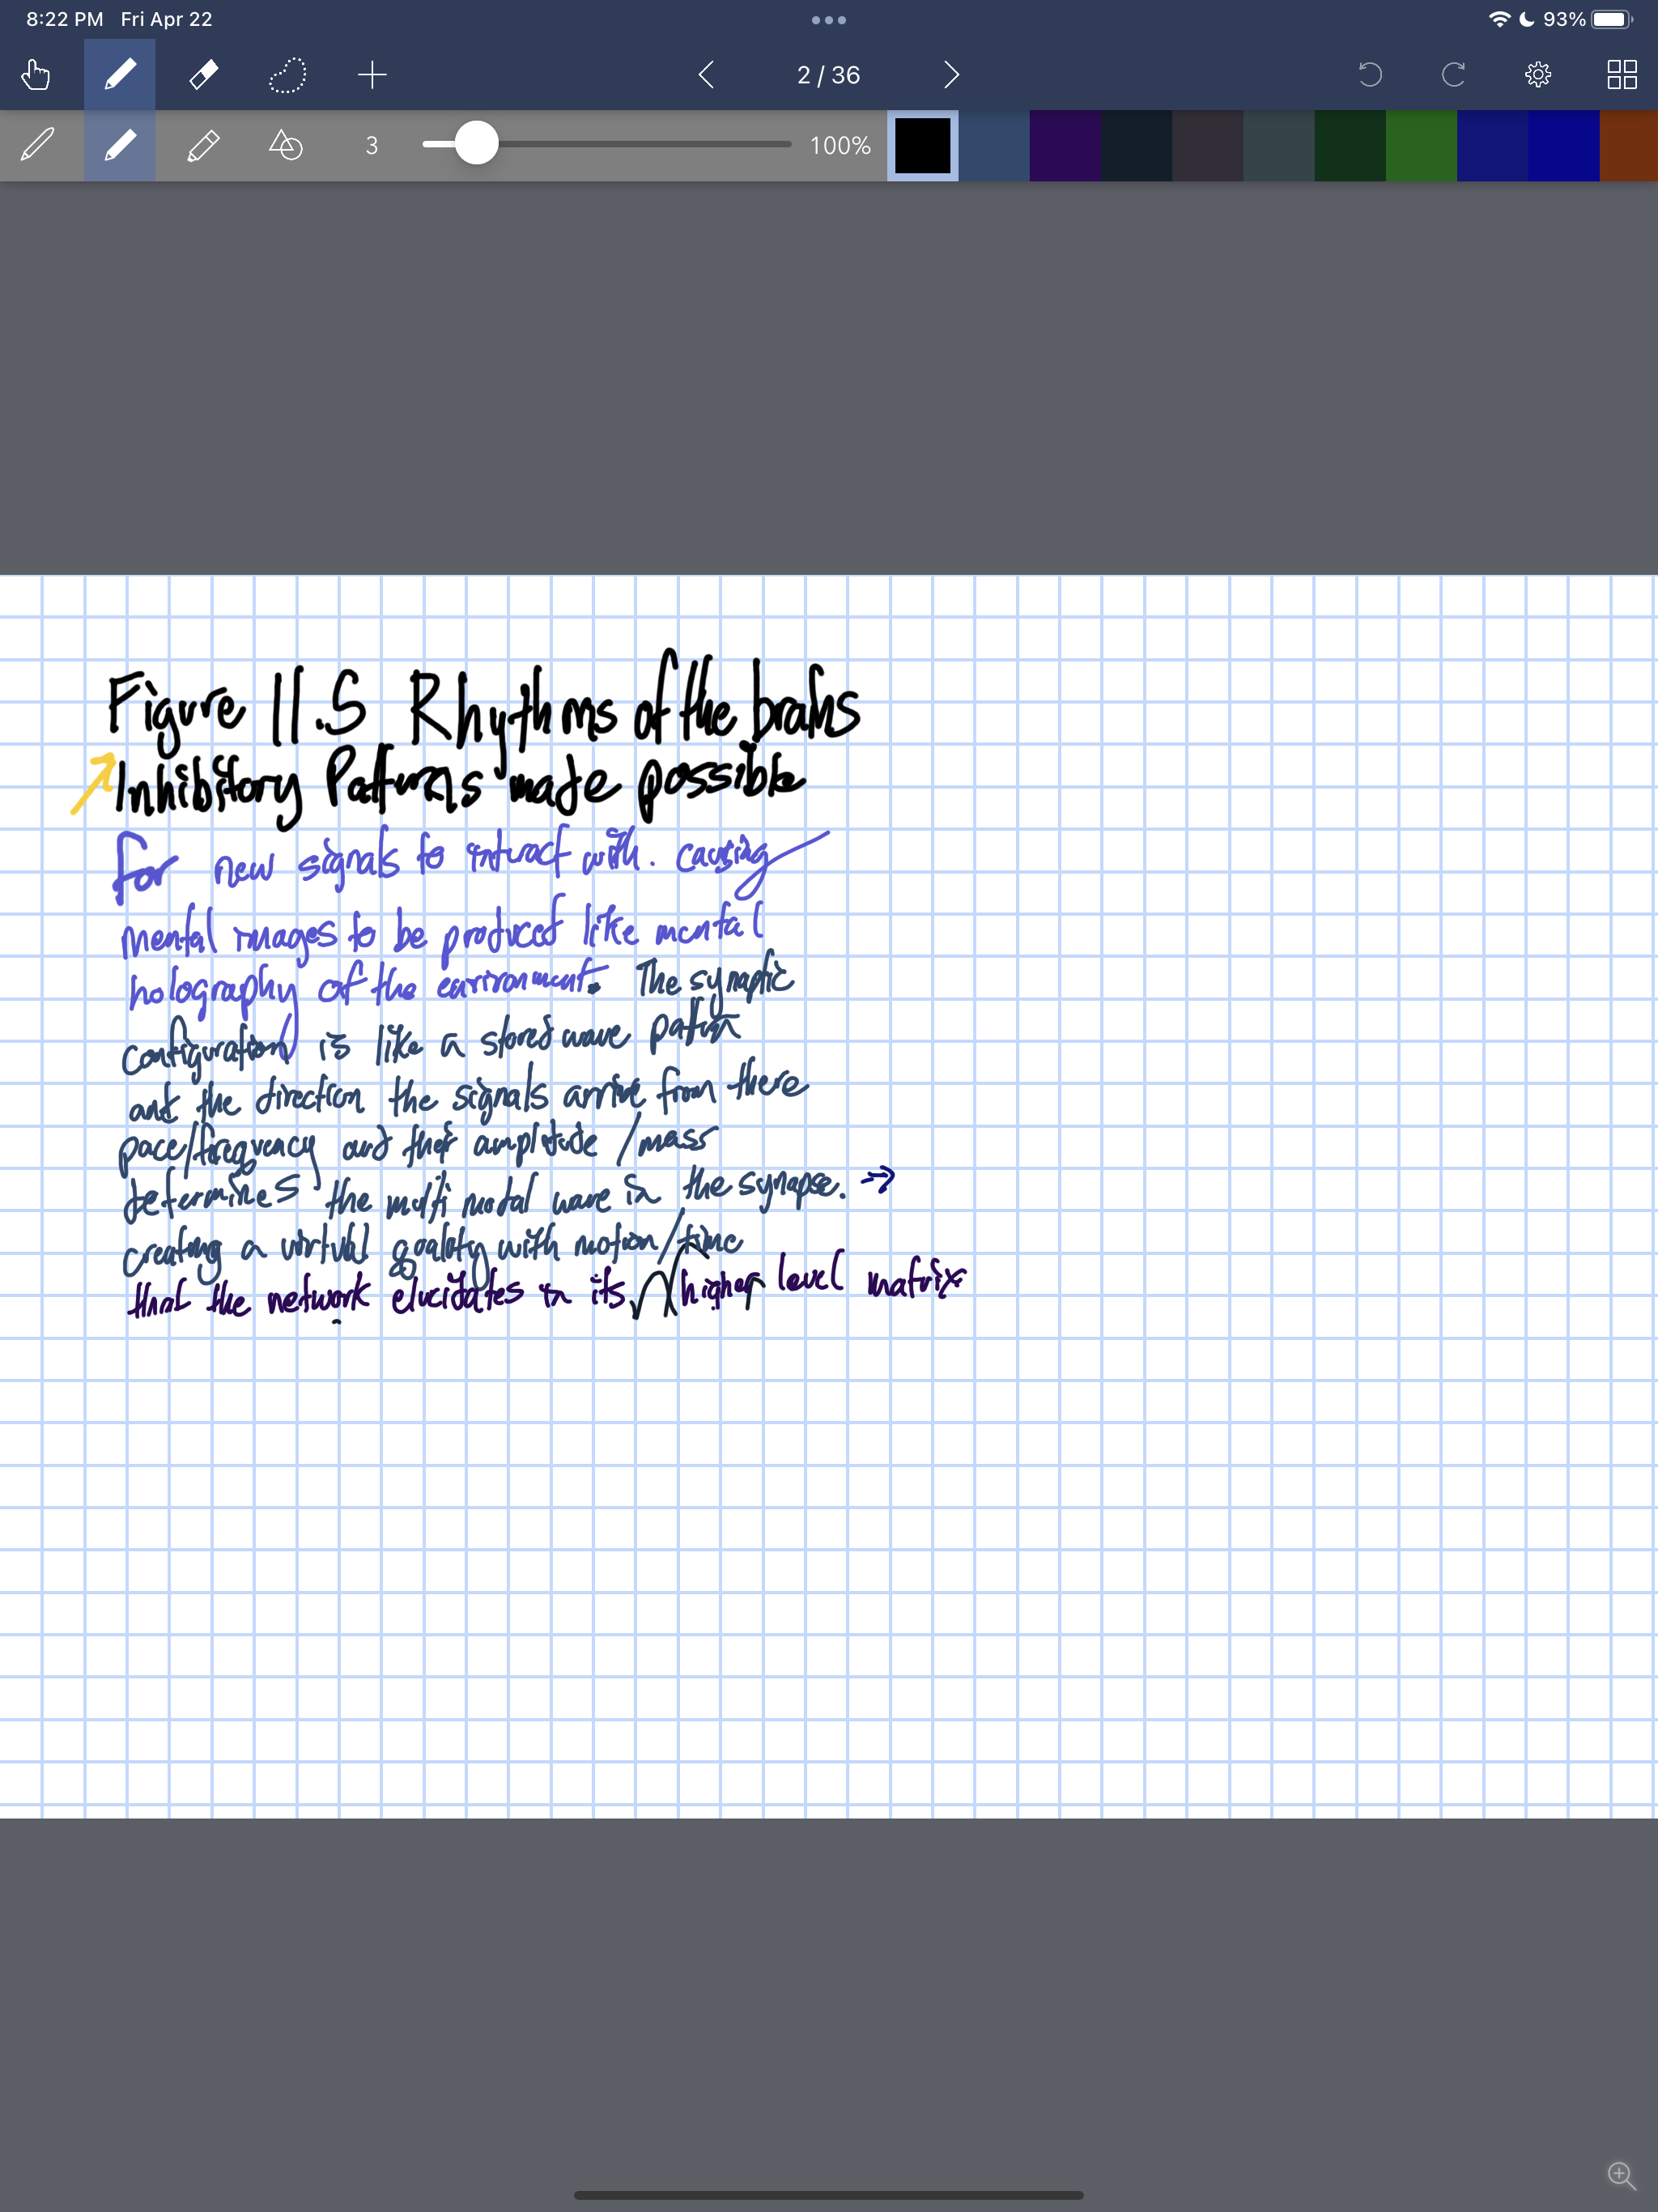 8:22 PM Fri Apr 22
93%
2 / 36
3
100%
Figure 11.5 Rhythms of the brains
Inhibitory Patterns made possible
for new signals to interact with. causing
mental images to be produced like mental
holography of the environment. The synaptic
configuration is like a stored wave pattern
and the direction the signals arrive from there
pace/frequency and their amplitude / mass
determines the multi modal wave in the synapse. →
creating a virtual with motion / time
that the network elucidates in its higher level matrix